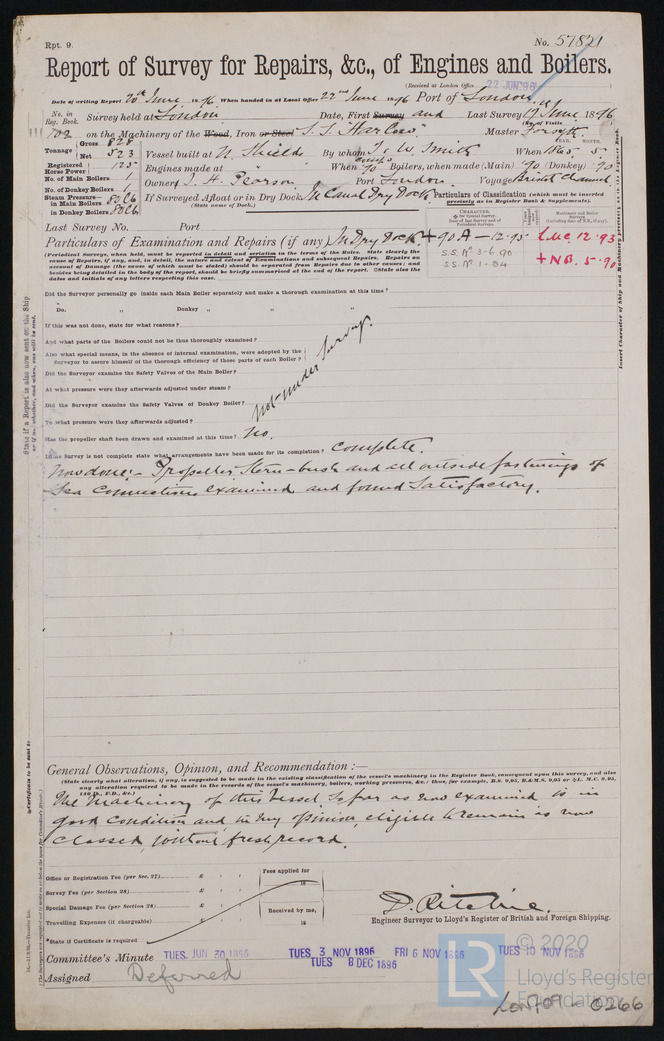 Rpt. 9.
No. 57821
Report of Survey for Repairs, &c., of Engines and Boilers.
(Received at London Office 22 JUN 96)
Date of writing Report 20th June 1896 When handed in at Local Office 22nd June 1896 Port of London
No. in Reg. Book. Survey held at London Date, First Survey and Last Survey 19 June 1896
(No. of Visits
702 on the Machinery of the Wood, Iron or Steel S.S. "Harlow" Master Forsyth
Tonnage Gross 828
Net 523
Vessel built at N. Shields By whom T. & W. Smith When 1865 5
YEAR. MONTH.
Registered Horse Power 125
Engines made at " When 90 Boilers, when made (Main) 90 (Donkey) 90
No. of Main Boilers 1
Owners J. H. Pearson Port London Voyage Bristol Channel
No. of Donkey Boilers 1
Steam Pressure— in Main Boilers 80lb
in Donkey Boilers 80lb
If Surveyed Afloat or in Dry Dock In Canal Dry Dock
(State name of Dock.)
Particulars of Classification (which must be inserted precisely as in Register Book & Supplements).
Last Survey No. Port
Particulars of Examination and Repairs (if any) In Dry Dock
+ 90A – 12.95
S.S. No 3-6.90
S.S. No 1-94
L.M.C. 12.93
+ N.B. 5.90
(Periodical Surveys, when held, must be reported in detail and seriatim in the terms of the Rules. State clearly the
cause of Repairs, if any, and, in detail, the nature and extent of Examinations and subsequent Repairs. Repairs on
account of Damage (the cause of which must be stated) should be separated from Repairs due to other causes; and
besides being detailed in the body of the report, should be briefly summarised at the end of the report. State also the
dates and initials of any letters respecting this case.
Did the Surveyor personally go inside each Main Boiler separately and make a thorough examination at this time?
Do. " Donkey " " "
If this was not done, state for what reasons?
And what parts of the Boilers could not be thus thoroughly examined?
Also what special means, in the absence of internal examination, were adopted by the
Surveyor to assure himself of the thorough efficiency of those parts of each Boiler?
Did the Surveyor examine the Safety Valves of the Main Boiler?
not under survey.
At what pressure were they afterwards adjusted under steam?
Did the Surveyor examine the Safety Valves of Donkey Boiler?
To what pressure were they afterwards adjusted?
Has the propeller shaft been drawn and examined at this time? No.
If the Survey is not complete state what arrangements have been made for its completion? Complete.
Now done:– Propeller, Stern-bush and all outside fastenings of
Sea Connections examined and found Satisfactory.
General Observations, Opinion, and Recommendation:—
(State clearly what alteration, if any, is suggested to be made in the existing classification of the vessel's machinery in the Register Book, consequent upon this survey, and also
any alteration required to be made in the records of the vessel's machinery, boilers, working pressures, &c.: thus, for example, B.S. 9,95, B.&M.S. 9,95 or L.M.C. 9,95,
The Machinery of this Vessel so far as now examined is in
good condition and in my opinion eligible to remain as now
classed, without fresh record.
Office or Registration Fee (per Sec. 27) £ : :
Survey Fee (per Section 28) £ : :
Special Damage Fee (per Section 28) £ : :
Travelling Expenses (if chargeable) £ : :
Fees applied for
18
Received by me,
18
*State if Certificate is required
D. Ritchie.
Engineer Surveyor to Lloyd's Register of British and Foreign Shipping.
Committee's Minute TUES. JUN 30 1896 TUES 3 NOV 1896 FRI 6 NOV 1896 TUES 10 NOV 1896
TUES 8 DEC 1896
Assigned Deferred
LR
© 2020
Lloyd's Register
Foundation
LON709-0266